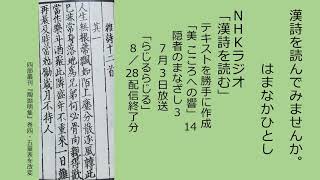 漢詩を読んでみませんか。
はまなかひとし
NHKラジオ
「漢詩を読む」
テキストを勝手に作成
「美 こころへの響」14
隠者のまなざし3
7月3日放送
「らじるらじる」
8/28配信終了分
雜詩十二首
其一
人生無根蔕飄如陌上塵分散逐風轉此
已非常身落地爲兄弟何必骨肉親得歡
當作樂斗酒聚比隣盛年不重來一日難
再晨及時當勉勵歲月不待人
四部叢刊『陶淵明集』巻四・五葉表を改変